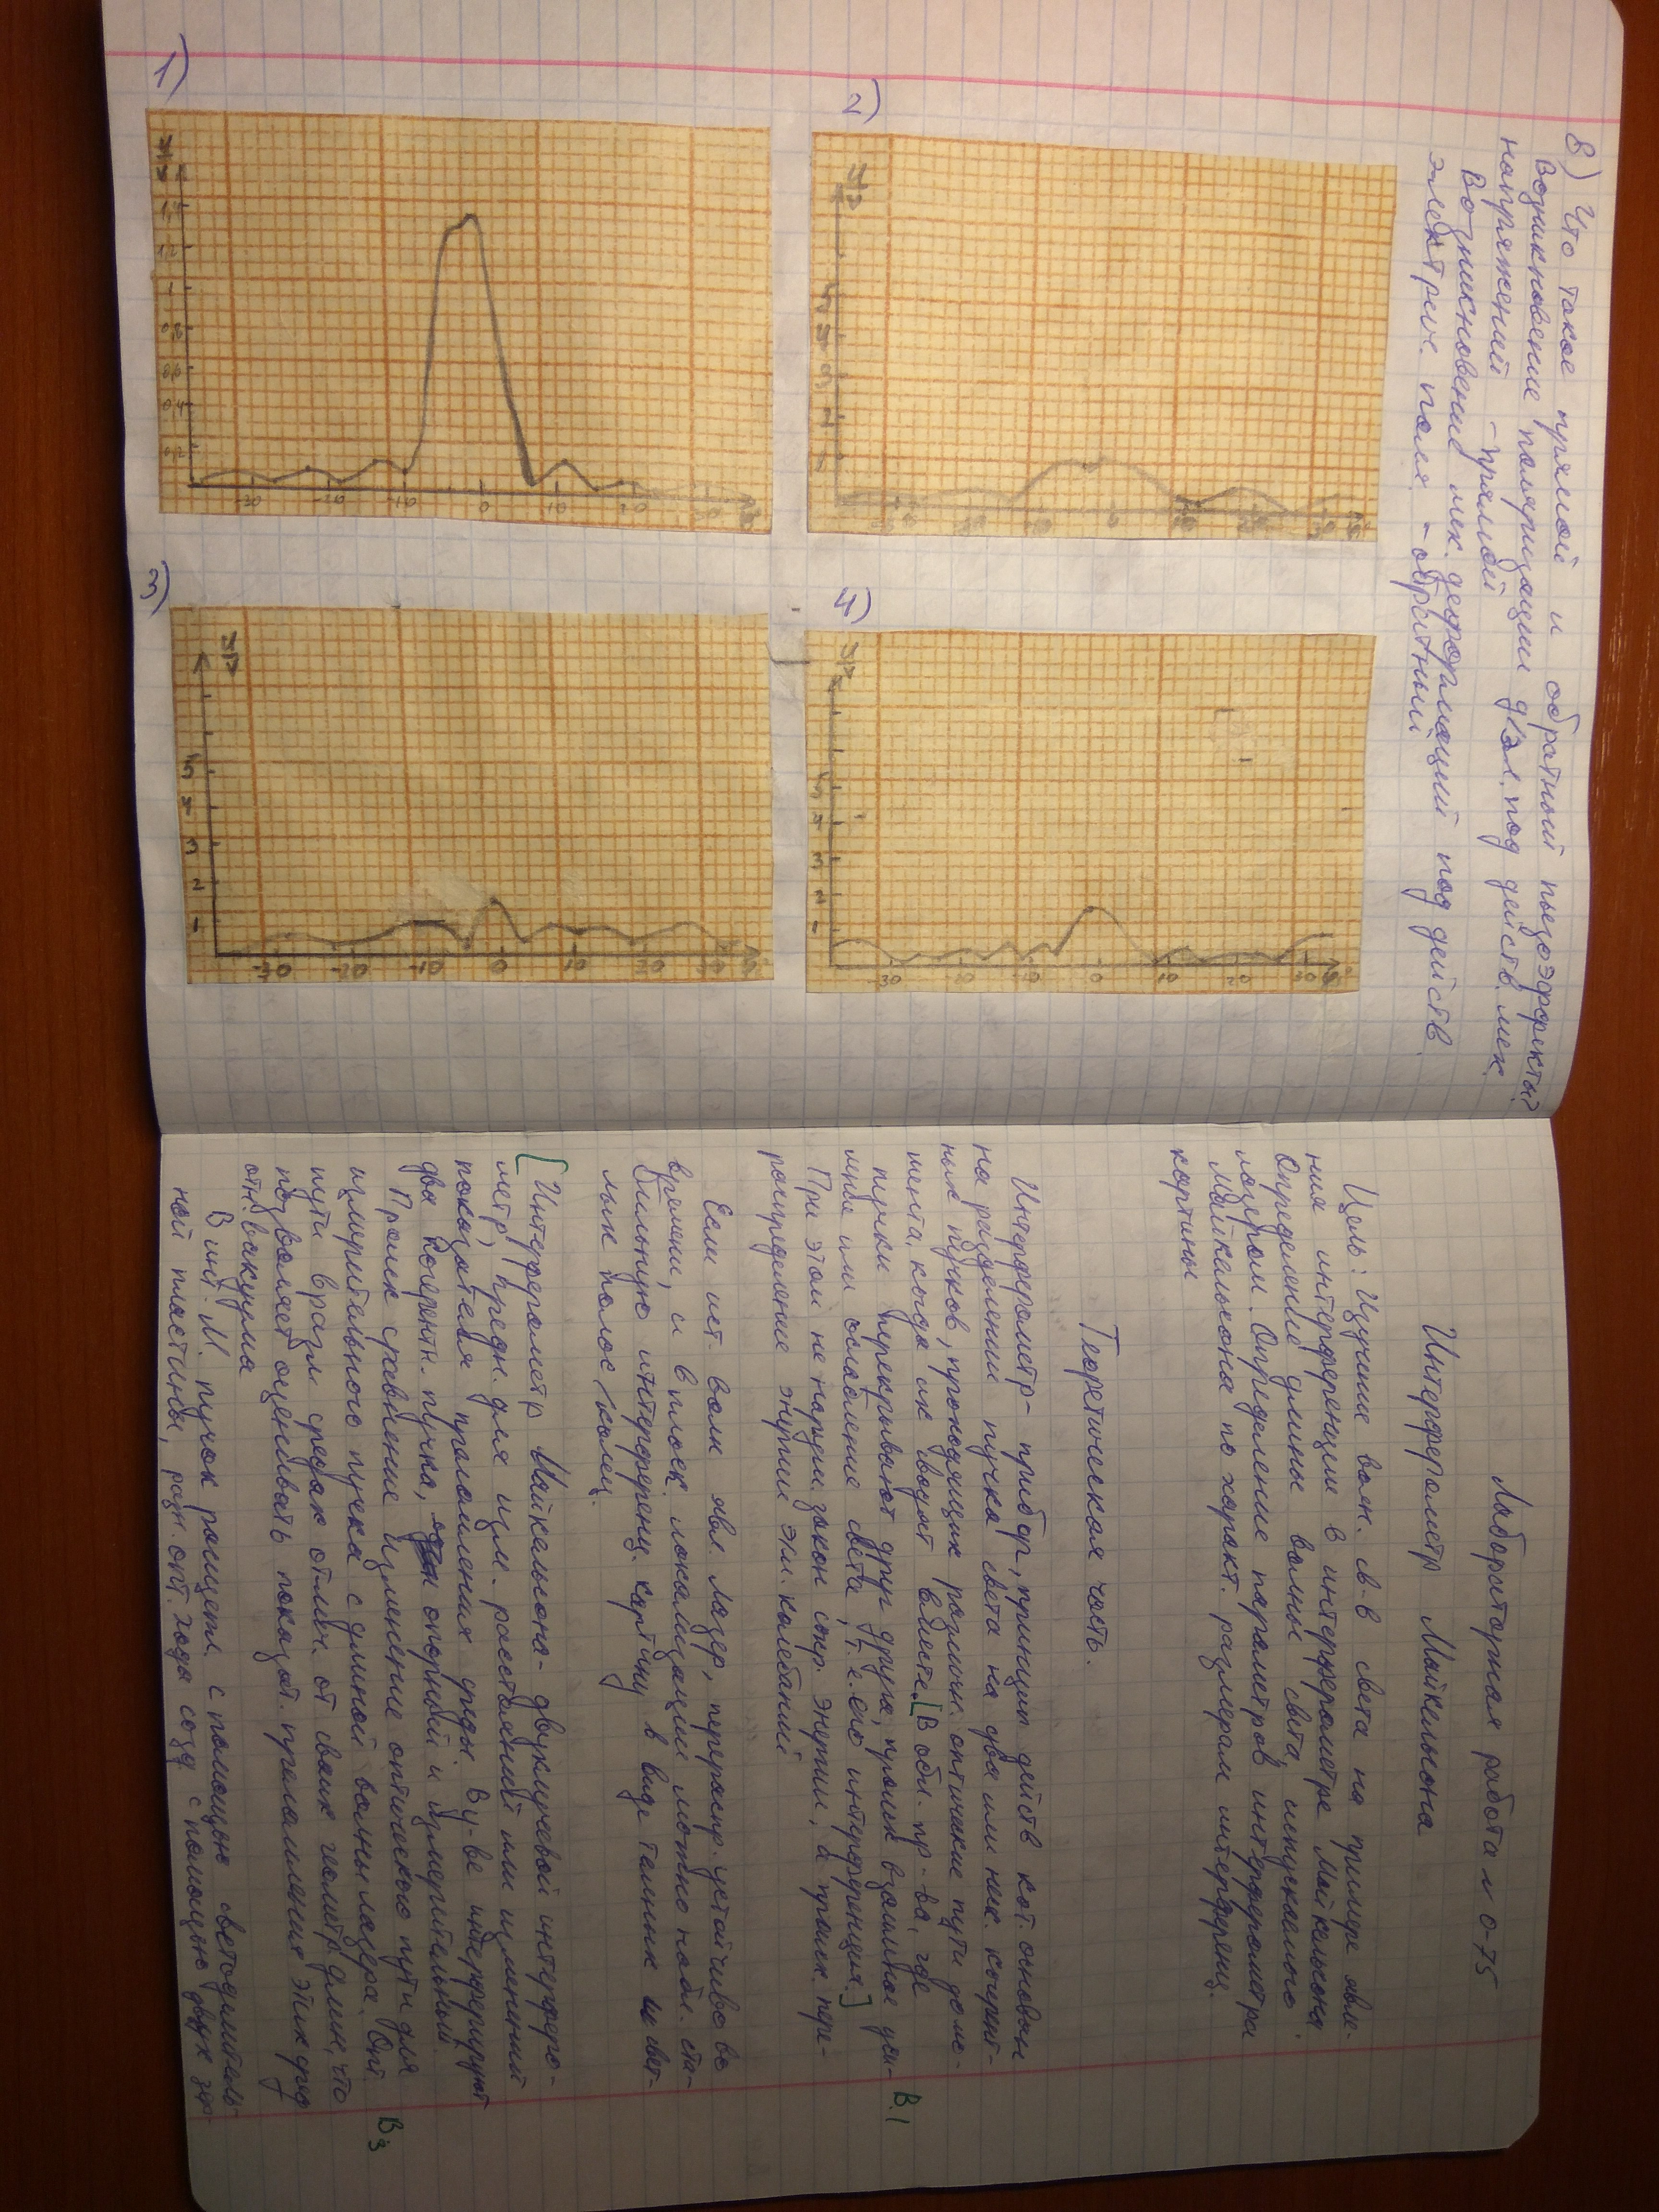 8) Что такое прямой и обратный пьезоэффекты?
Возникновение поляризации д/эл. под действ. мех.
напряжений - прямой
Возникновение мех. деформаций под действ.
электрич. поля. - обратный
2)
30
10
0
10
U
V
5
4
3
2
1
4)
30
20
10
0
-10
20
-30
U
V
5
4
3
2
1
1)
10
0
-10
U
V
1,2
1
0,8
0,6
0,4
0,2
3)
20
10
0
-10
-20
-30
U
V
5
4
3
2
1
Лабораторная работа N 0-75
Интерферометр Майкельсона
Цель: Изучение волн. св-в света на примере явле-
ния интерференции в интерферометре Майкельсона.
Определение длины волны света, испускаемого
лазером. Определение параметров интерферометра
Майкельсона по характ. размерам интерференц.
картины
Теоретическая часть.
Интерферометр - прибор, принцип действ кот. основан
на разделении пучка света на два или неск. когерент-
ных пучков, проходящих различн. оптические пути до мо-
мента, когда их сводят вместе. [В обл. пр-ва, где
пучки перекрывают друг друга, происх взаимное уси-
ление или ослабление света, т.е. его интерференция.]
В.1
При этом не наруш. закон сохр. энергии, а происх. пере-
распределение энергии э/м. колебаний
Если ист. волн явл. лазер, перераспр. устойчиво во
времени, и в плоск. локализации можно набл. ста-
бильную интерференц. картину в виде темных и свет-
лых полос/колец.
[Интерферометр Майкельсона - двухлучевой интерферо-
метр, предн. для изм. расстояний или изменений
показателя преломления среды. В у-ве интерферируют
два когерентн. пучка, опорный и измерительный.
Происх сравнение изменение оптического пути для
измерительного пучка с длиной волны лазера. Опт.
В3
пути в разл средах отлич. от своих геометр. длин, что
позволяет оценивать показат. преломления этих сред
отн. вакуума
В инт. М. пучок расщепл. с помощью светоделитель-
ной пластины, разн. опт. хода созд с помощью двух зер-